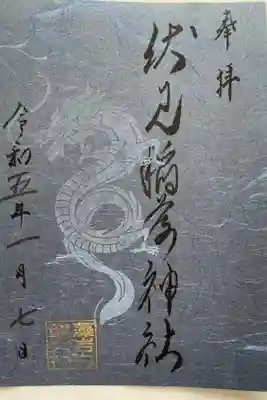 奉拝
伏見稲荷神社
令和五年一月七日